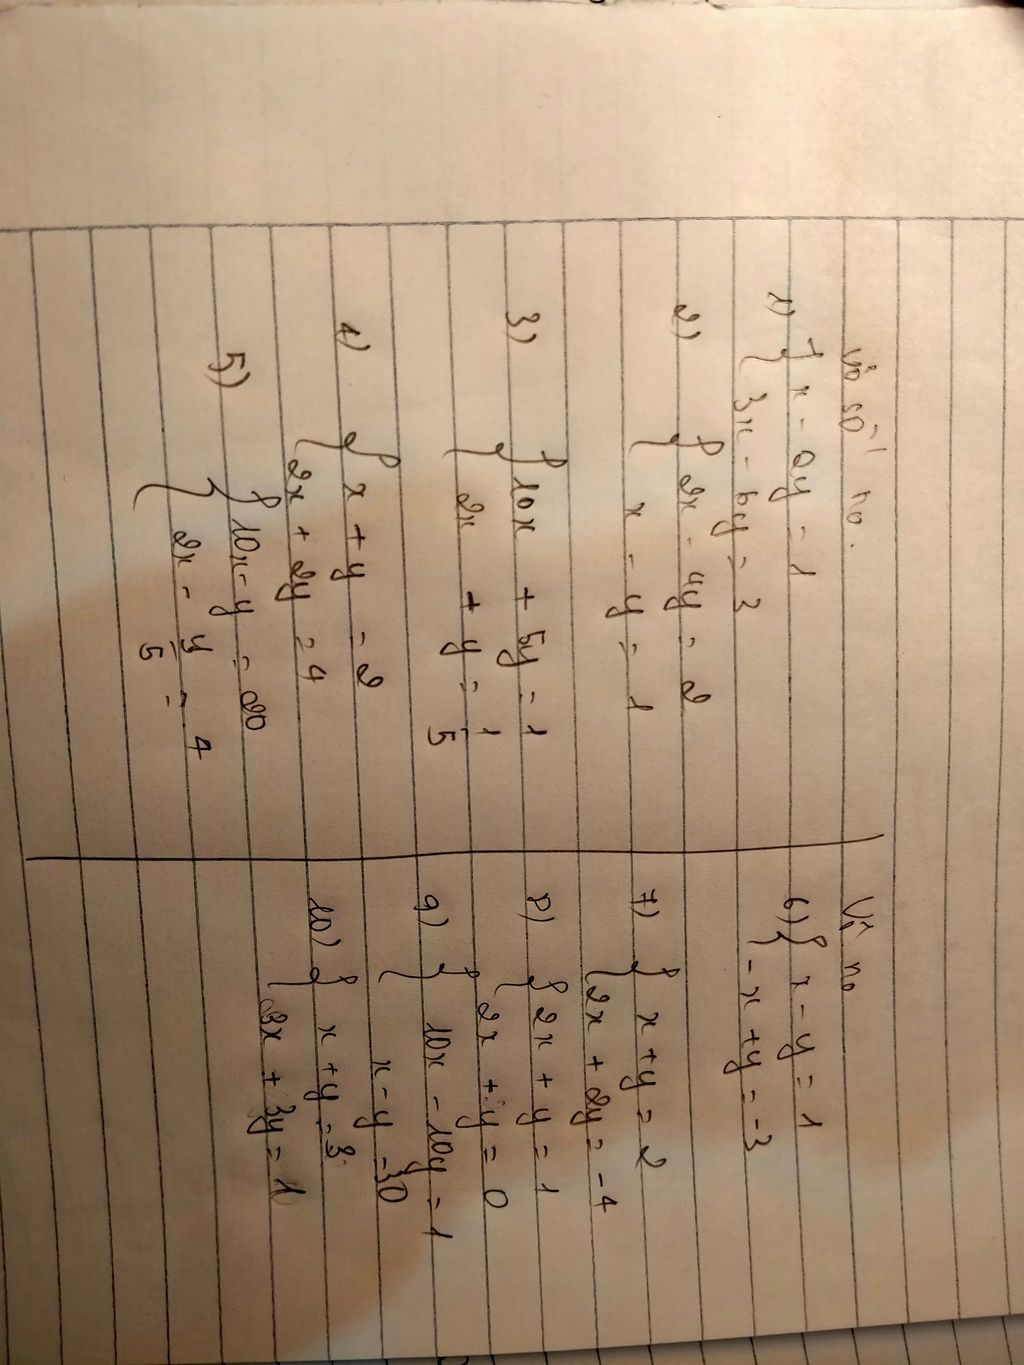 vô số no.
1) { x - 2y = 1
3x - 6y = 3
2) { 2x - 4y = 2
x - y = 1
3) { 10x + 5y = 1
2x + y = 1/5
4) { x + y = 2
2x + 2y = 4
5) { 10x - y = 20
2x - y/5 = 4
Vô no
6) { x - y = 1
-x + y = -3
7) { x + y = 2
2x + 2y = -4
8) { 2x + y = 1
2x + y = 0
9) { 10x - 10y = 1
x - y = 30
10) { x + y = 3
3x + 3y = 1